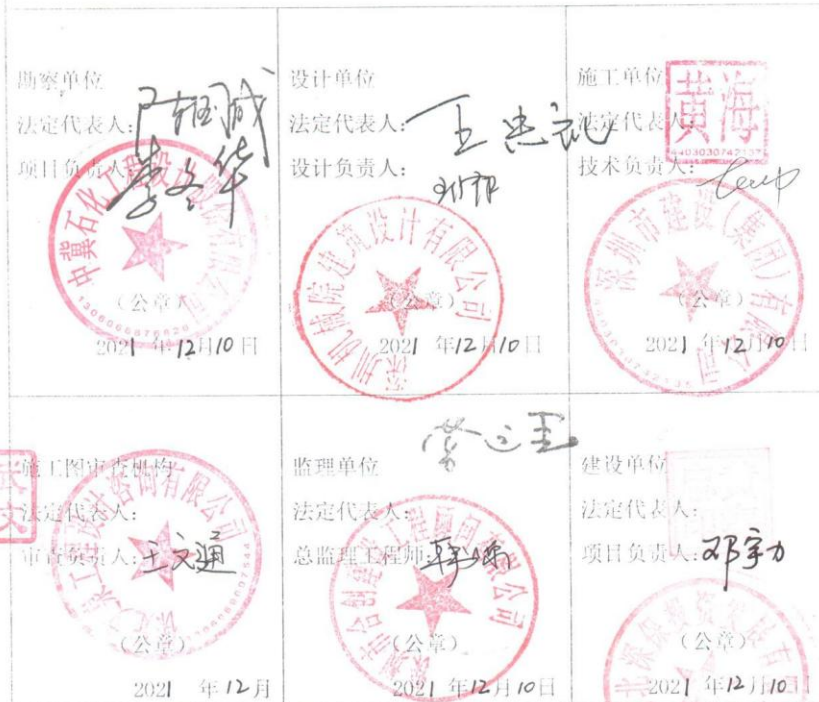 勘察单位
法定代表人:
项目负责人: 李冬华
中冀石化工程设计有限公司
(公章)
2021 年12月10日
设计单位
法定代表人: 王忠礼
设计负责人:
深圳机械院建筑设计有限公司
(公章)
2021 年12月10日
施工单位
法定代表人:
黄海
技术负责人:
深圳市建设(集团)有限公司
(公章)
2021 年12月10日
施工图审查机构
法定代表人:
审查负责人: 王文通
设计咨询有限公司
(公章)
2021 年12月
监理单位
法定代表人:
总监理工程师:
深圳市合创建设工程顾问有限公司
(公章)
2021 年12月10日
建设单位
法定代表人:
项目负责人: 邓宇力
(公章)
2021 年12月10日